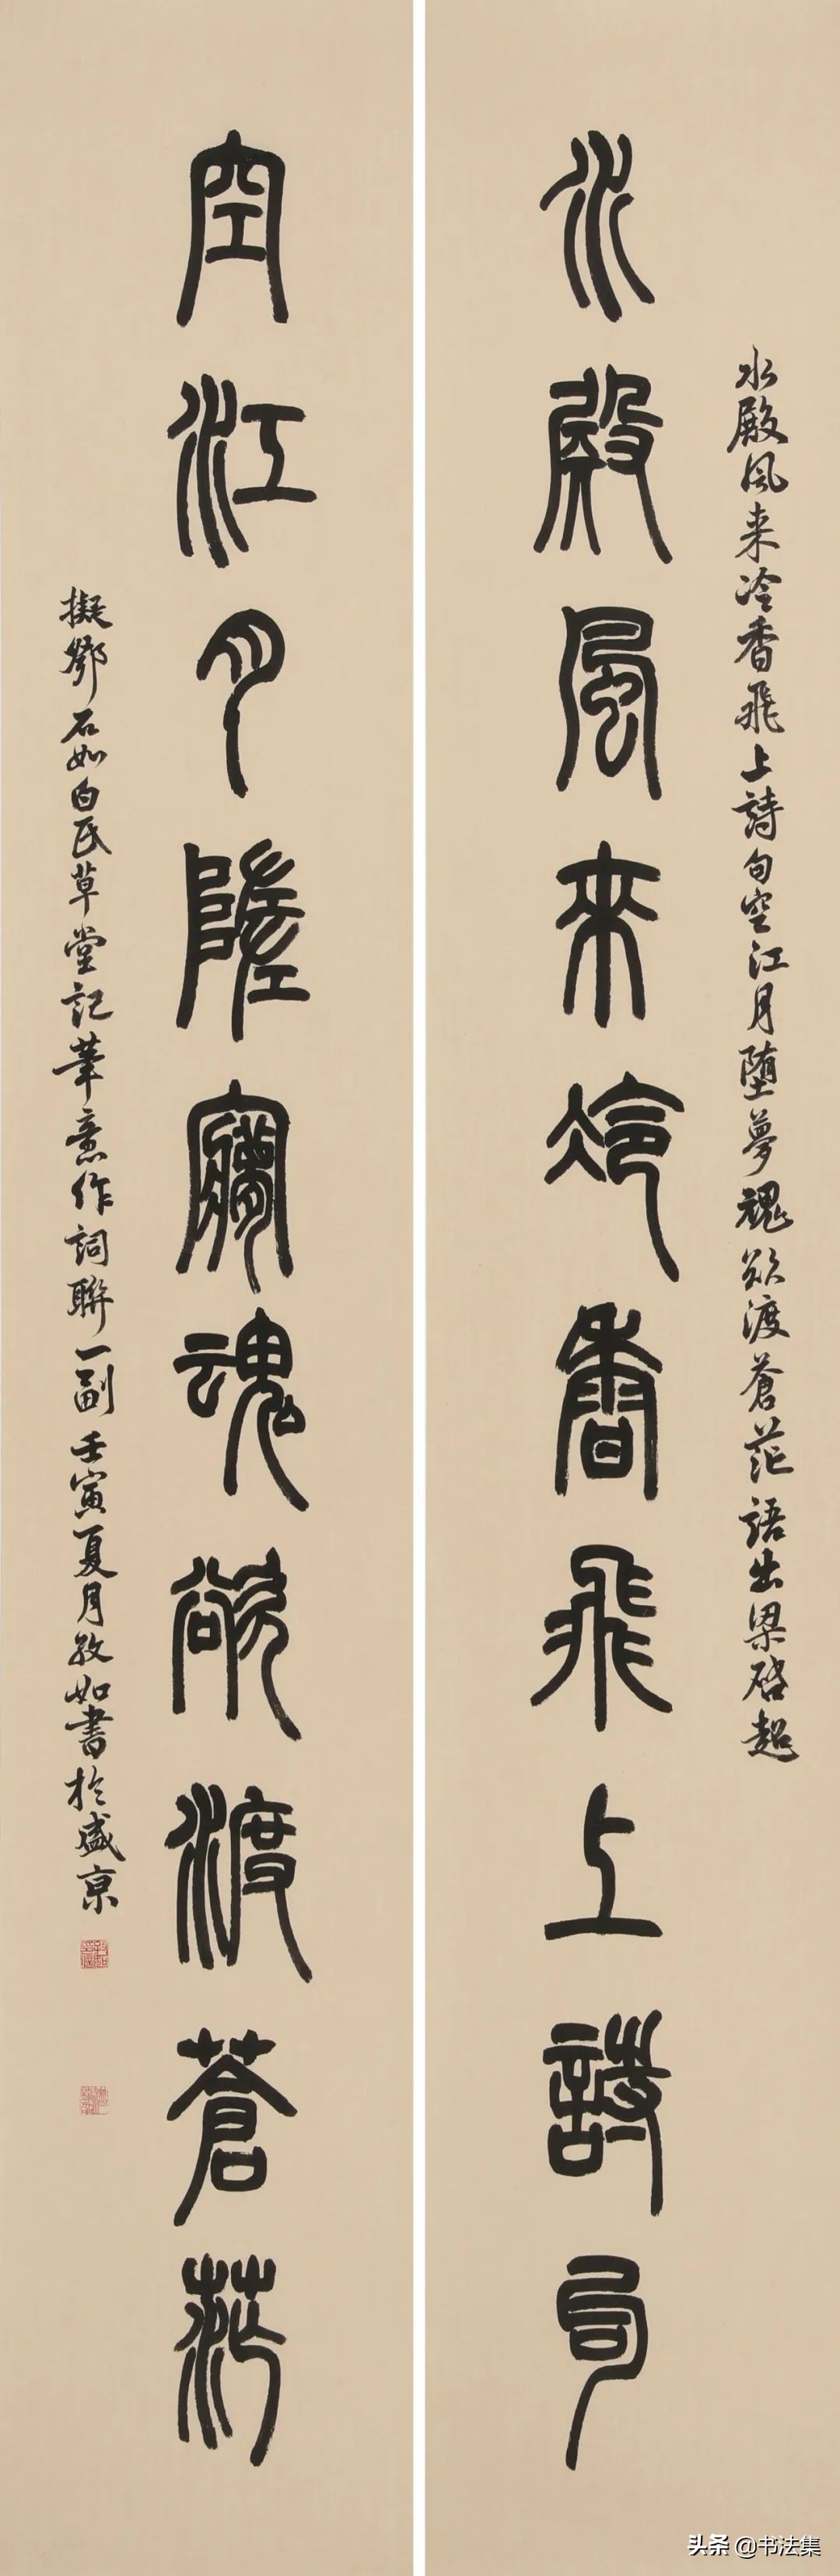 水殿風來冷香飛上詩句空江月墮夢魂欲渡蒼茫語出梁啓超
水殿風來冷香飛上詩句
空江月墮夢魂欲渡蒼茫
擬鄧石如白氏草堂記筆意作詞聯一副壬寅夏月孜如書於盛京
头条 @书法集